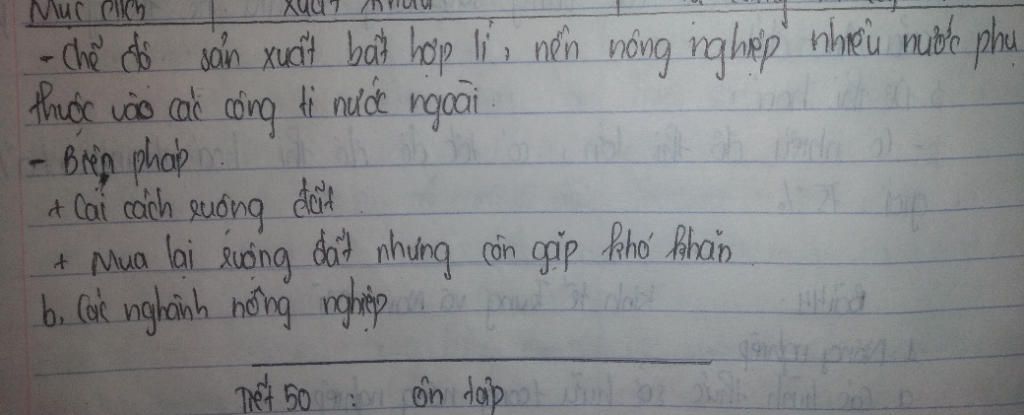 Mục đích xuất khẩu
- Chế độ sản xuất bất hợp lí, nên nông nghiệp nhiều nước phụ
thuộc vào các công ti nước ngoài.
- Biện pháp.
+ Cải cách ruộng đất
+ Mua lại ruộng đất nhưng còn gặp khó khăn
b, Các nghành nông nghiệp
Tiết 50: ôn tập